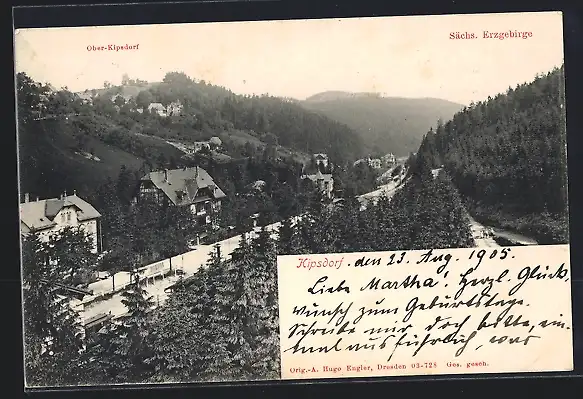 Ober-Kipsdorf
Sächs. Erzgebirge
Kipsdorf, den 23. Aug. 1905.
Liebe Martha! Herzl. Glück,
wunsch zum Geburtstage.
Schreibe mir doch bitte, ein-
mal ausführlich, was
Orig.-A. Hugo Engler, Dresden 03-728 Ges. gesch.